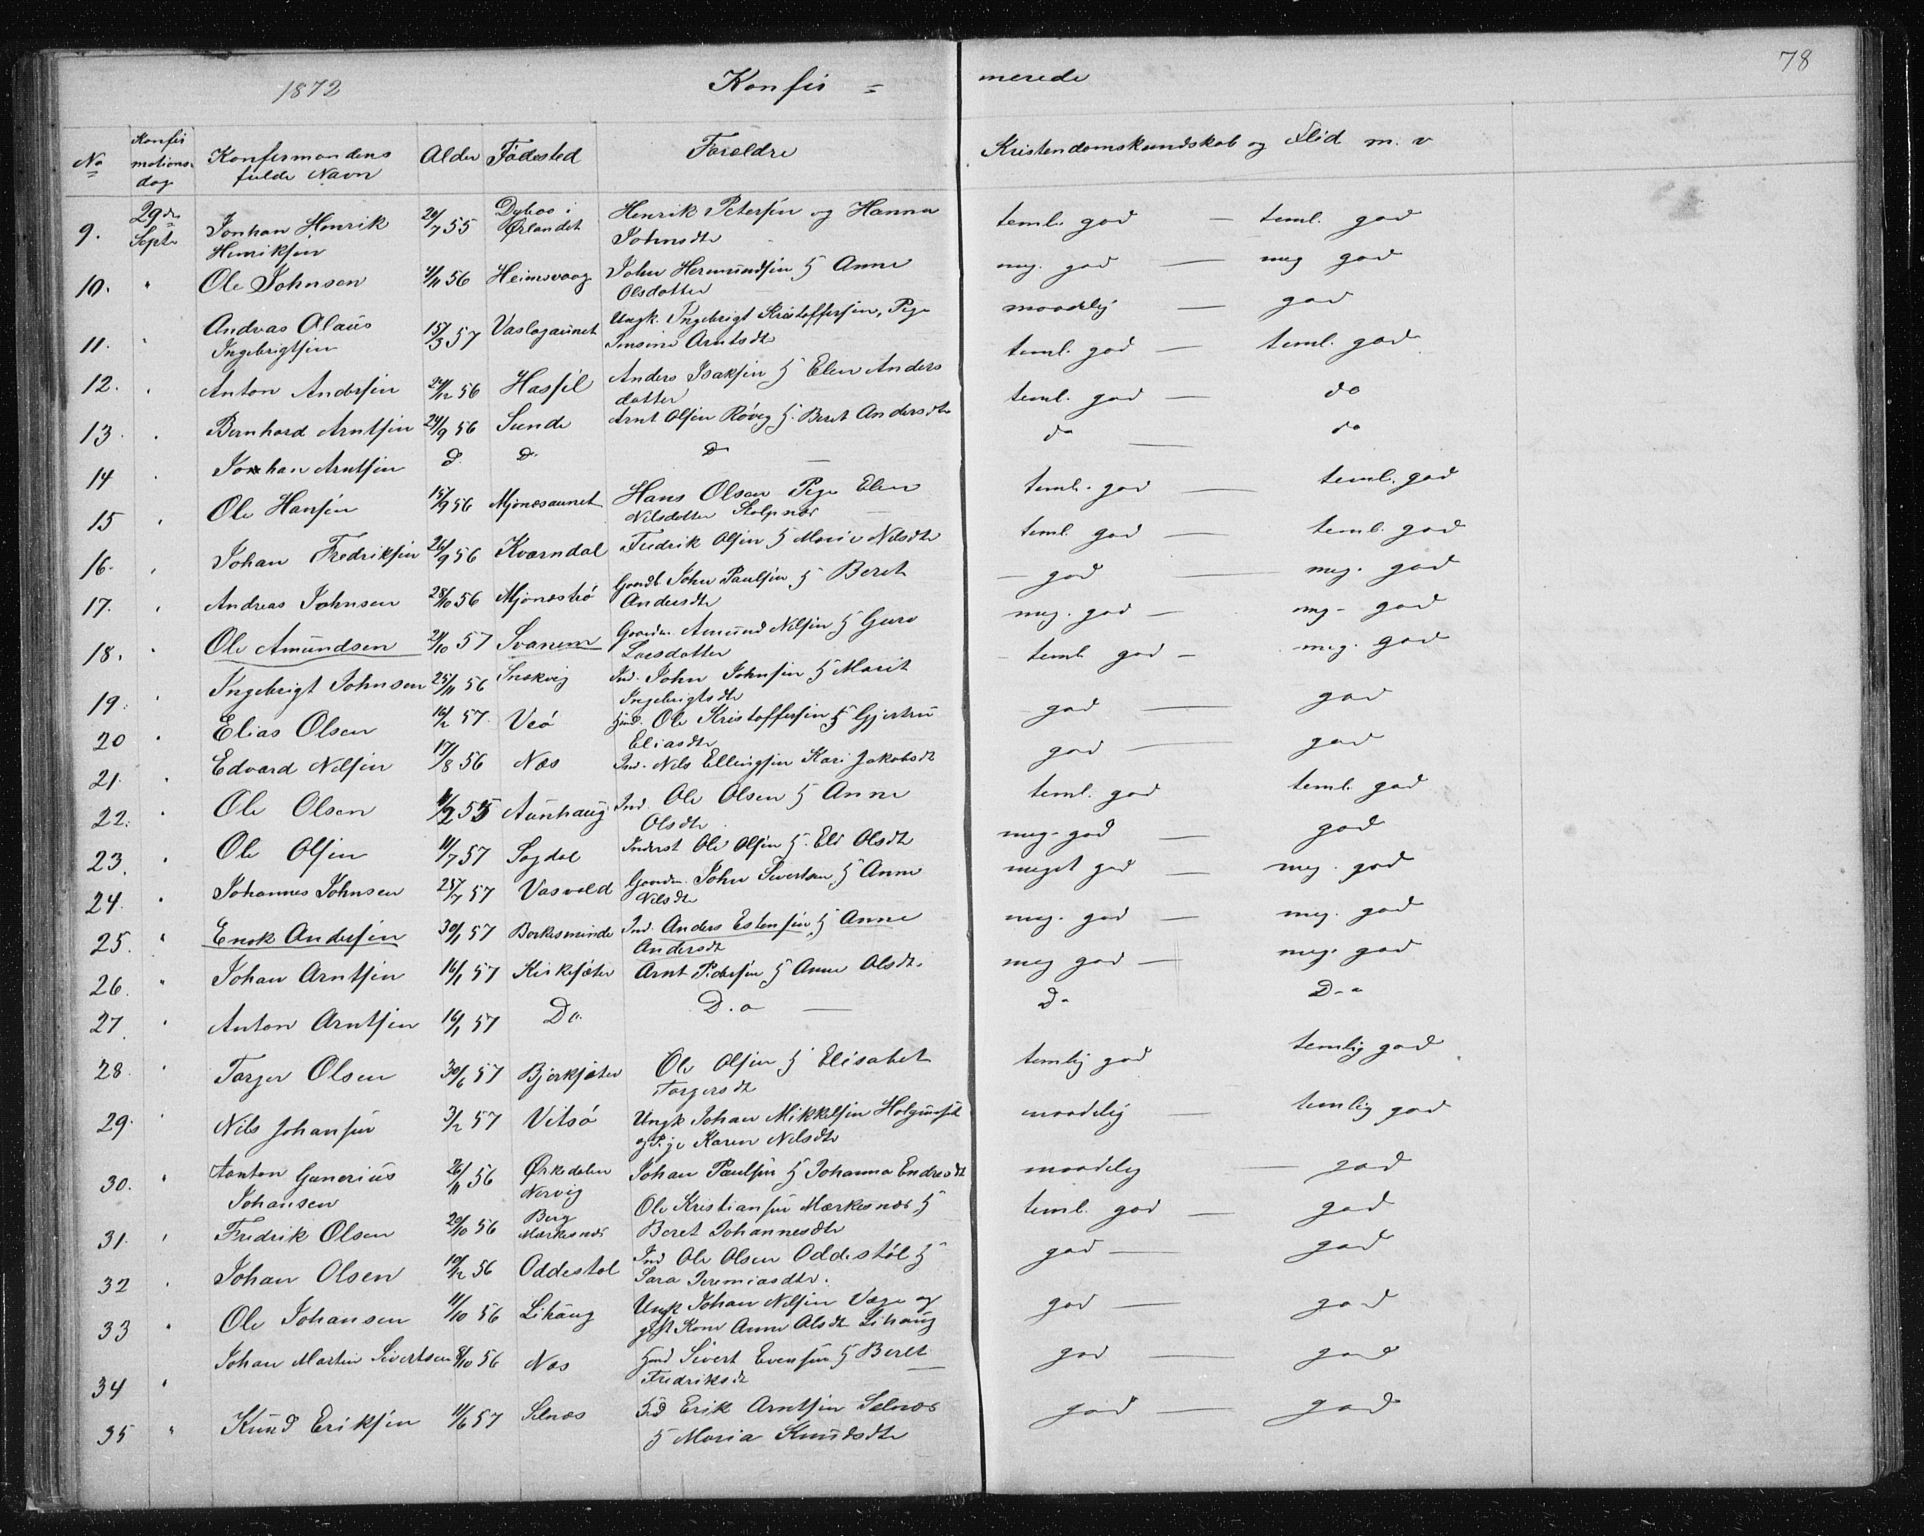 78
1872 Konfir = merede
No Konfir mations. dag Konfirmandens fulde Navn Alder Fødested Forældre Kristendomskundskab og Flid m. v
9. 29de Septr Jonhan Henrik Henriksen 20/7 55 Dybos i Ørlandet Henrik Petersen og Hanna Johnsdtr teml. god — teml. god
10. " Ole Johnsen 4/11 56 Heimsvaag John Hermundsen & Anne Olsdatter meg. god — meg god
11. " Andreas Olaus Ingebrigtsen 15/3 57 Vaslagaunet Ungk. Ingebrigt Kristoffersen, Pige Jensine Arntsdtr maadelig — god
12. " Anton Andersen 24/12 56 Hasfil Anders Isaksen & Elen Anders datter teml. god — teml. god
13. " Bernhard Arntsen 24/9 56 Sunde Arnt Olsen Røvig & Beret Andersdtr teml. god — do
14 " Jonhan Arntsen d. D. D — do — do
15 " Ole Hansen 15/9 56 Mjønesaunet Hans Olsen Pige Elen Nilsdatter Stolpnæs — teml. god — teml. god
16. " Johan Fredriksen 26/9 56 Kværndal Fredrik Olsen & Marie Nilsdtr teml. god — teml. god
17. " Andreas Johnsen 28/10 56 Mjønestrø Gaardb. John Paulsen & Beret Andersdtr — god — meg. god
18. " Ole Amundsen 21/10 57 Svanem Gaardm. Amund Nilsen & Guro Larsdatter meg. god — meg. god
19. " Ingebrigt Johnsen 25/11 56 Snekvig Ind. John Johnsen & Marit Ingebrigtsdtr — teml. god — meg. god
20 " Elias Olsen 16/2 57 Veø Hmd. Ole Kristoffersen & Gjertru Eliasdtr god — god
21. " Edvard Nilsen 17/8 56 Næs Ind. Nils Ellingsen Kari Jakobsdt god — god
22. " Ole Olsen 1/2 55 Aunhaug Ind. Ole Olsen & Anne Olsdtr teml. god teml. god
23. " Ole Olsen 11/7 57 Sagdal Inderst Ole Olsen & Eli Olsdt meg. god — god
24. " Johannes Johnsen 25/7 57 Vasvold Gaardm. John Sivertsen & Anne Nilsdtr meget god — meg. god
25. " Enok Andersen 30/1 57 Borkesminde Ind. Anders Estensen & Anne Andersdt meg. god — meg. god
26. " Johan Arntsen 16/1 57 Kirkesæter Arnt Pedersen & Anne Olsdtr meg god — meg. god
27. " Anton Arntsen 16/1 57 Do D.o — Do D-o
28. " Torger Olsen 30/6 57 Bjørksæter Ole Olsen & Elisabet Torgersdt temlig god temlig god
29. " Nils Johansen 3/2 57 Vitsø Ungk Johan Mikkelsen og Pige Karen Nilsdtr maadelig — temlig god
30. " Aanton Gunerius Johansen 26/11 56 Ørkedalen Nervig Johan Paulsen & Johanna Endresdt maadelig — god
31. " Fredrik Olsen 20/10 56 Berg Mærkesnæs Ole Kristiansen Mærkesnæs & Beret Johannesdtr teml. god — god
32 " Johan Olsen 10/12 56 Oddestøl Ind Ole Olsen Oddestøl & Sara Jeremiasdtr. god — god
33 " Ole Johansen 11/10 56 Lihaug Ungk Johan Nilsen Væge og gft Kone Anne Olsdt Lihaug god — god
34 " Johan Martin Sivertsen 8/10 56 Næs Hmd Sivert Evensen & Beret Fredriksdt god — god
35 " Knud Eriksen 11/6 57 Selnæs Ind Erik Arntsen Selnæs & Maria Knudsdtr god — god